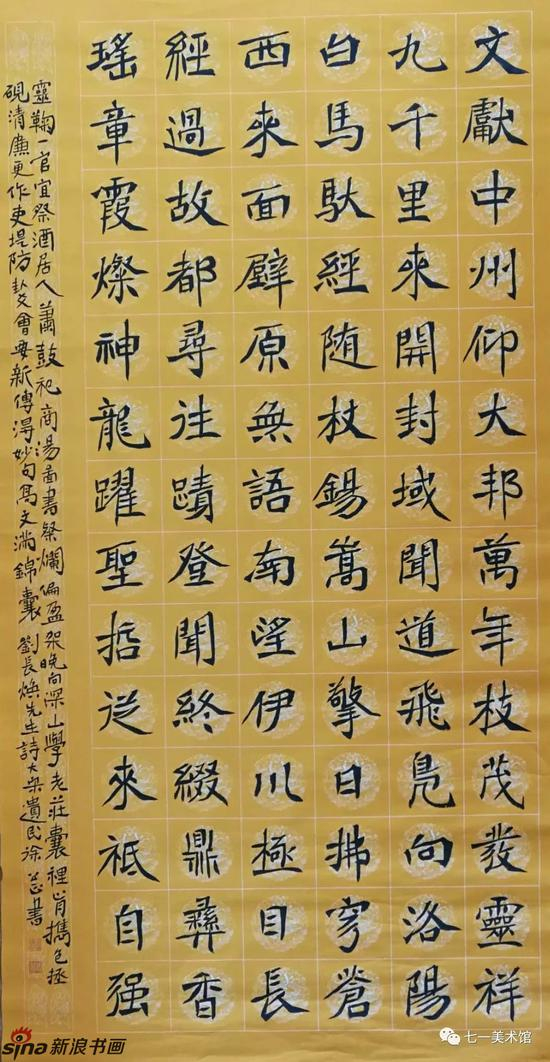 文獻中州仰大邦萬年枝茂發靈祥
九千里來開封域聞道飛鳧向洛陽
白馬馱經随杖錫嵩山擎日拂穹蒼
西來面壁原無語南望伊川極目長
經過故都尋往蹟登聞終綴鼎彝香
瑤章霞燦神龍躍聖哲從來祗自强
靈鞠一官宜祭酒居人蕭鼓祀商湯圖書粲爛偏盈架晚向深山學老莊囊裡肯攜包拯
硯清廉更作吏堤防會要新傳得妙句高文滿錦囊 劉長煥先生詩大梁遺民徐書
sina新浪书画
七一美术馆